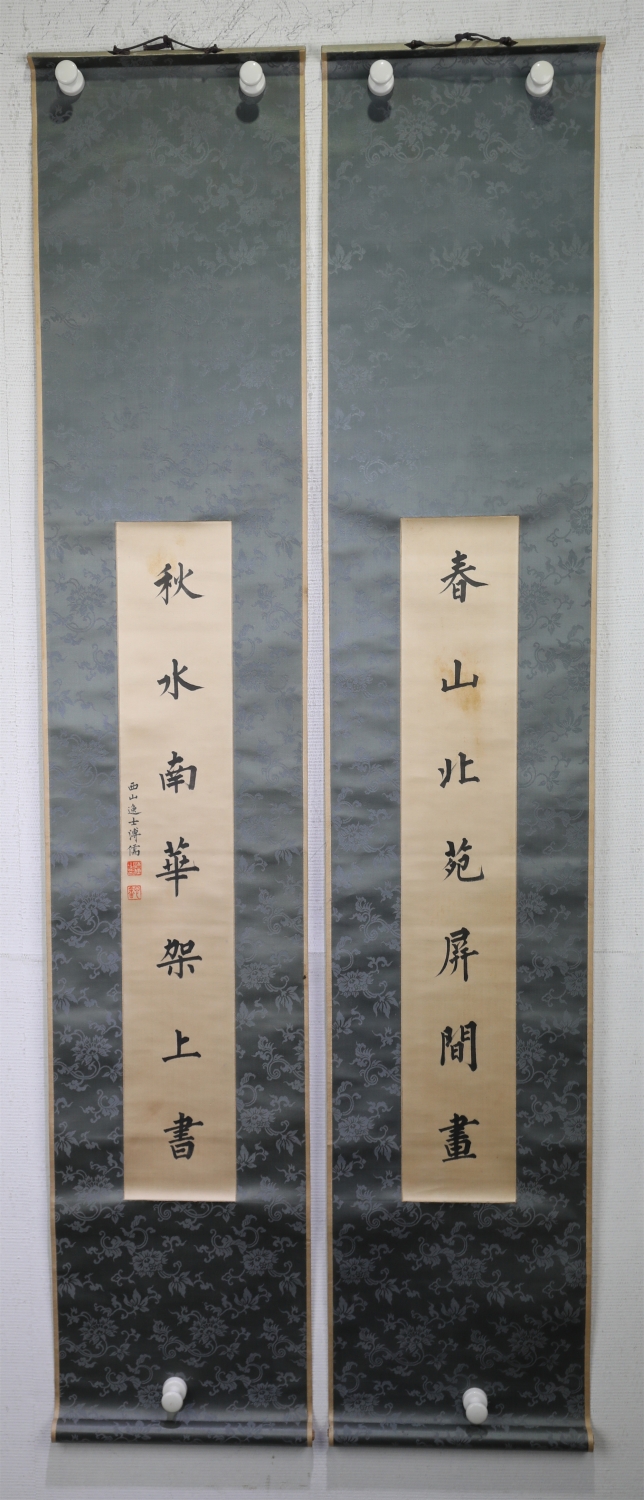 春山北苑屏間畫
秋水南華架上書
西山逸士溥儒